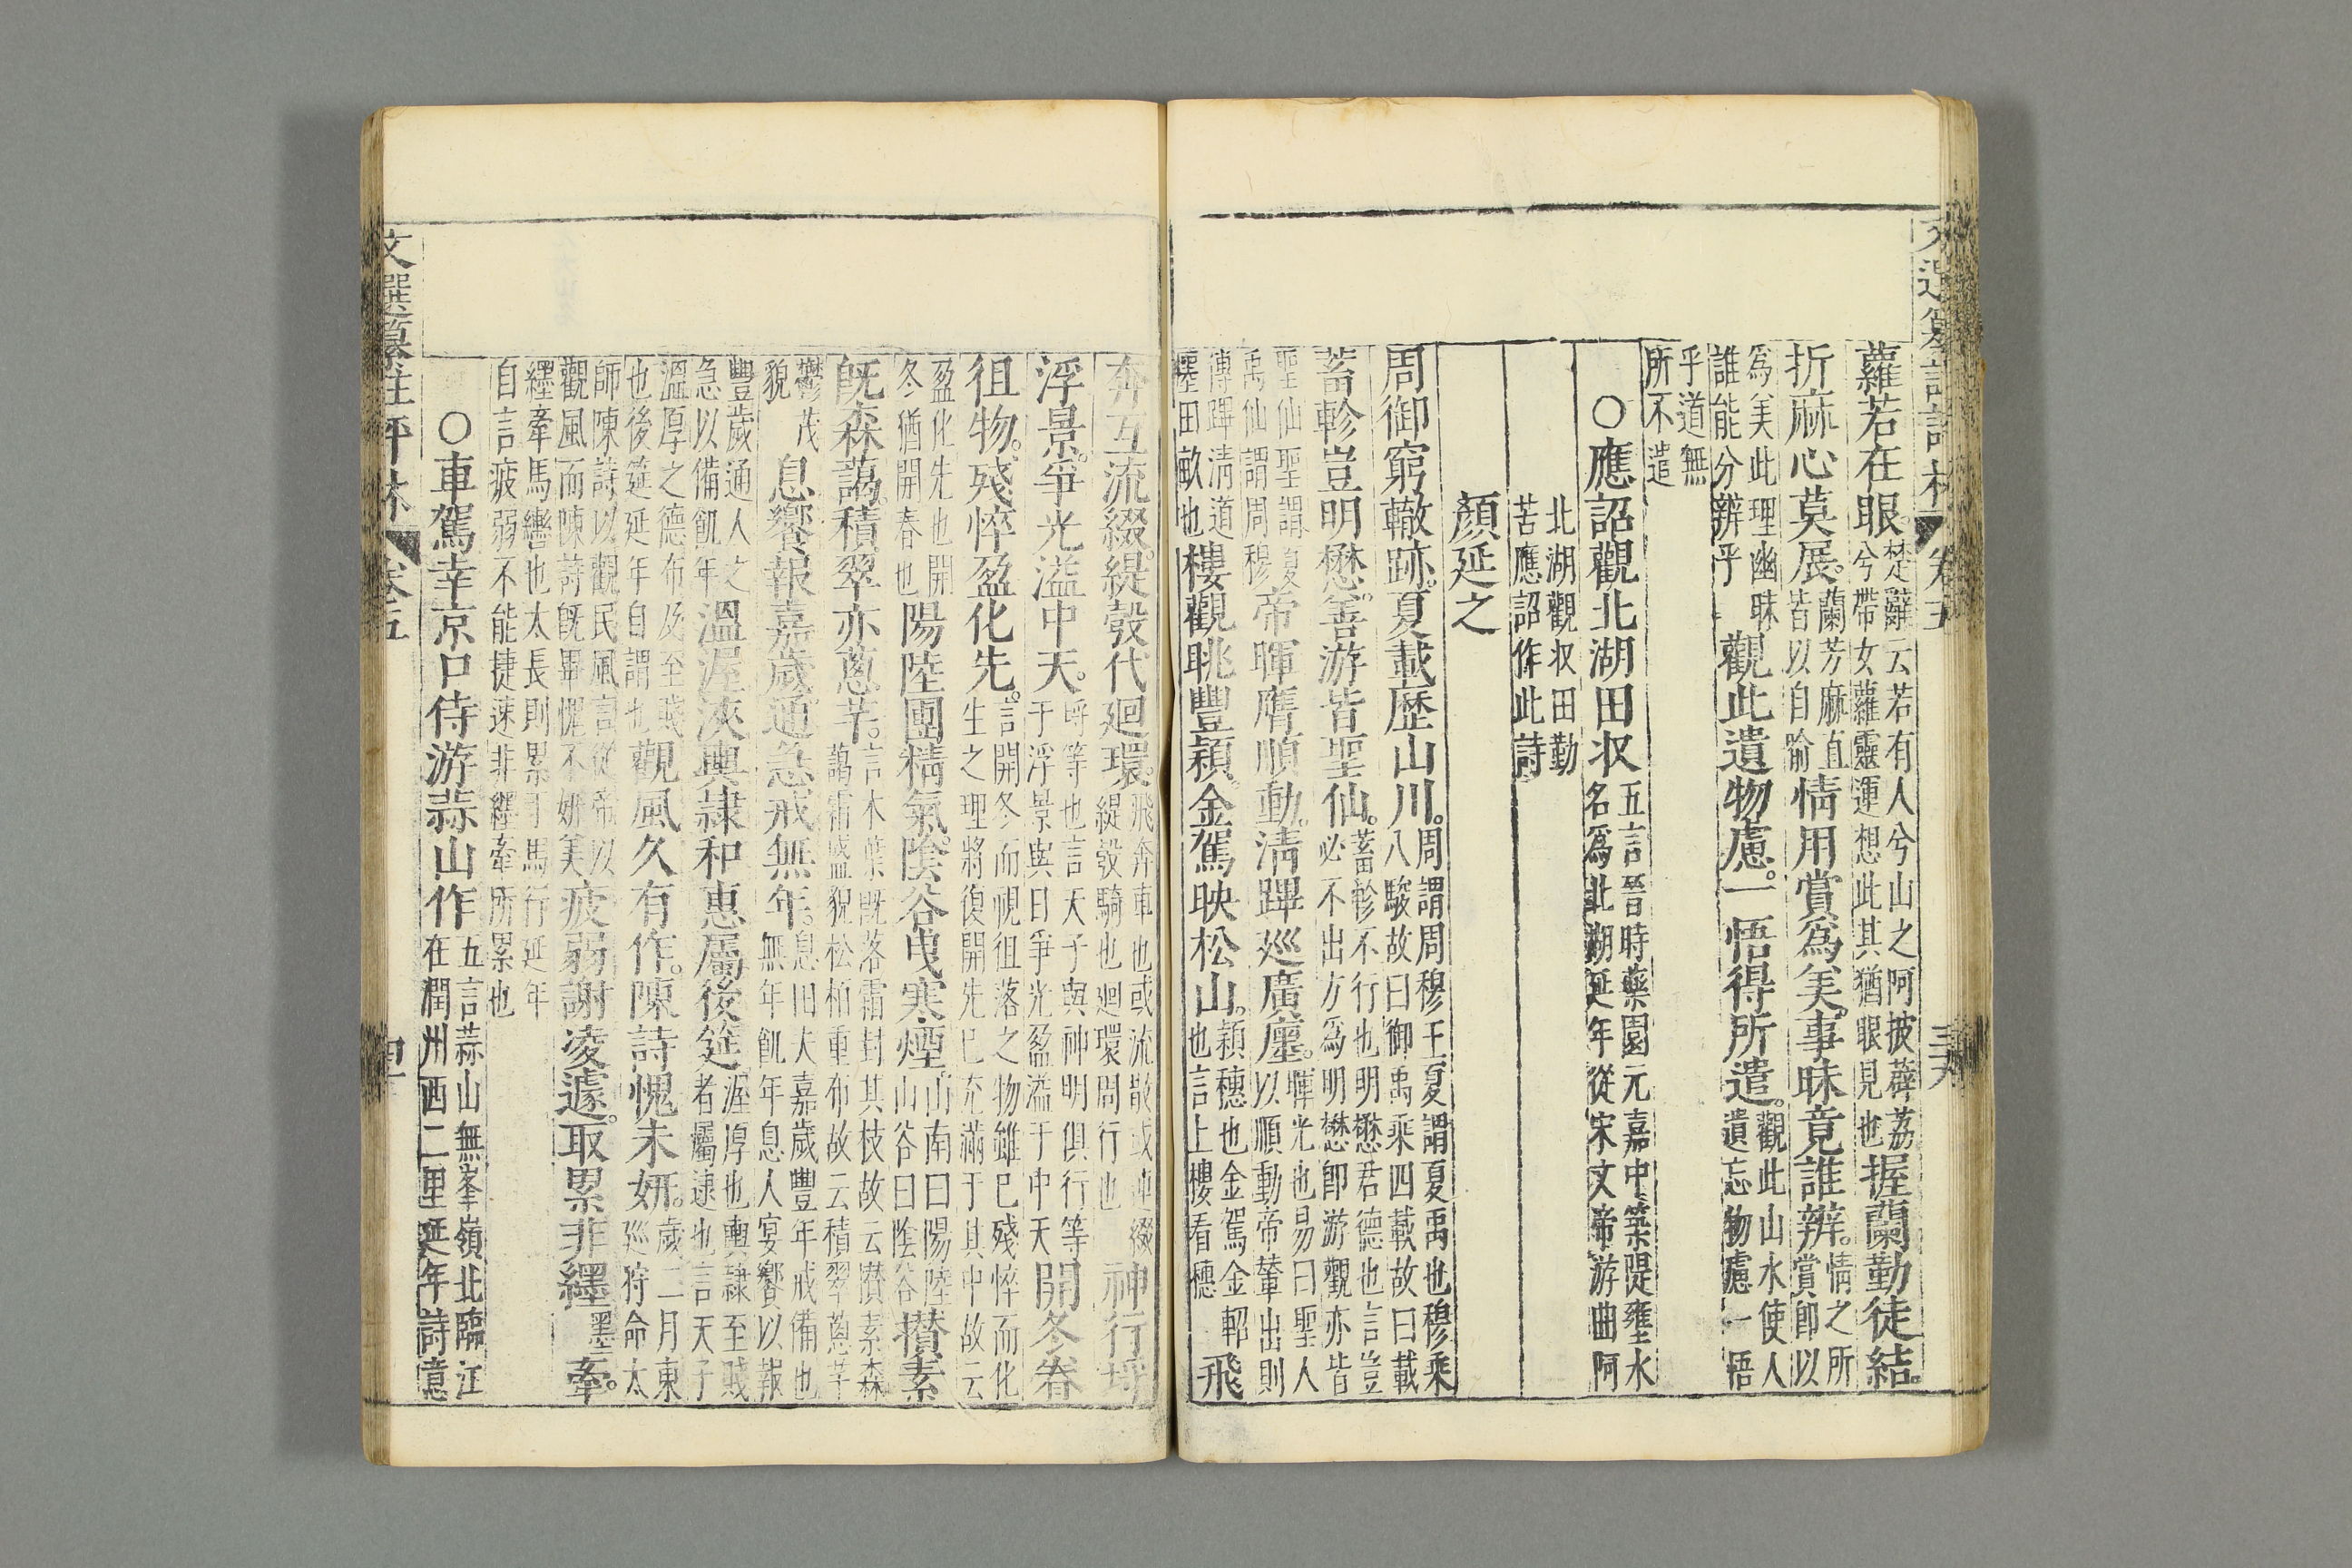 蘿若在眼。楚辭云若有人兮山之阿披薜荔兮帶女蘿靈運想此其猶眼見也握蘭勤徒結。
折麻心莫展。蘭芳麻直皆以自喻情用賞為美。事昧竟誰辨。情之所賞即以
為美此理幽昧誰能分辨乎觀此遺物慮。一悟得所遣。觀此山水使人遺忘物慮一悟
乎道無所不遣
○應詔觀北湖田收五言晉時藥園元嘉中築隄壅水名為北湖延年從宋文帝游曲阿
北湖觀收田勤苦應詔作此詩
顏延之
周御窮轍跡。夏載歷山川。周謂周穆王夏謂夏禹也穆乘八駿故曰御禹乘四載故曰載
蓄軫豈明懋。善游皆聖仙。蓄軫不行也明懋君德也言豈必不出方為明懋即游觀亦皆
聖仙聖謂夏禹仙謂周穆帝暉膺順動。清蹕巡廣廛。暉光也易曰聖人以順動帝輦出則
傳蹕清道廛田畝也樓觀眺豐穎。金駕映松山。穎穗也金駕金軺也言上樓看穗飛
奔互流綴。緹彀代廻環。飛奔車也或流散或連綴緹彀騎也廻環周行也神行埒
浮景。爭光溢中天。埒等也言天子與神明俱行等于浮景與日爭光盈溢于中天開冬眷
徂物。殘悴盈化先。言開冬而視徂落之物雖已殘悴而化生之理將復開先已充滿于其中故云
盈化先也開冬猶開春也陽陸團精氣。陰谷曳寒煙。山南曰陽陸山谷曰陰谷攅素
既森藹。積翠亦蔥芊。言木葉既落霜封其枝故云攅素森藹霜盛貌松柏重布故云積翠蔥芊
鬱茂貌息饗報嘉歲。通急戒無年。息田夫嘉歲豐年戒備也無年飢年息人宴饗以報
豐歲通人之急以備飢年溫渥浹輿隸和惠屬後筵渥厚也輿隸至賤者屬逮也言天子
溫厚之德布及至賤也後筵延年自謂也觀風久有作。陳詩愧未妍。歲二月東巡狩命太
師陳詩以觀民風言從帝以觀風而陳詩既畢愧不妍美疲弱謝凌遽。取累非纆墨牽。
纆牽馬轡也太長則累于馬行延年自言疲弱不能捷速非纆牽所累也
○車駕幸京口侍游蒜山作五言蒜山無峯嶺北臨江在潤州西二里延年詩意
文選纂註評林
卷五